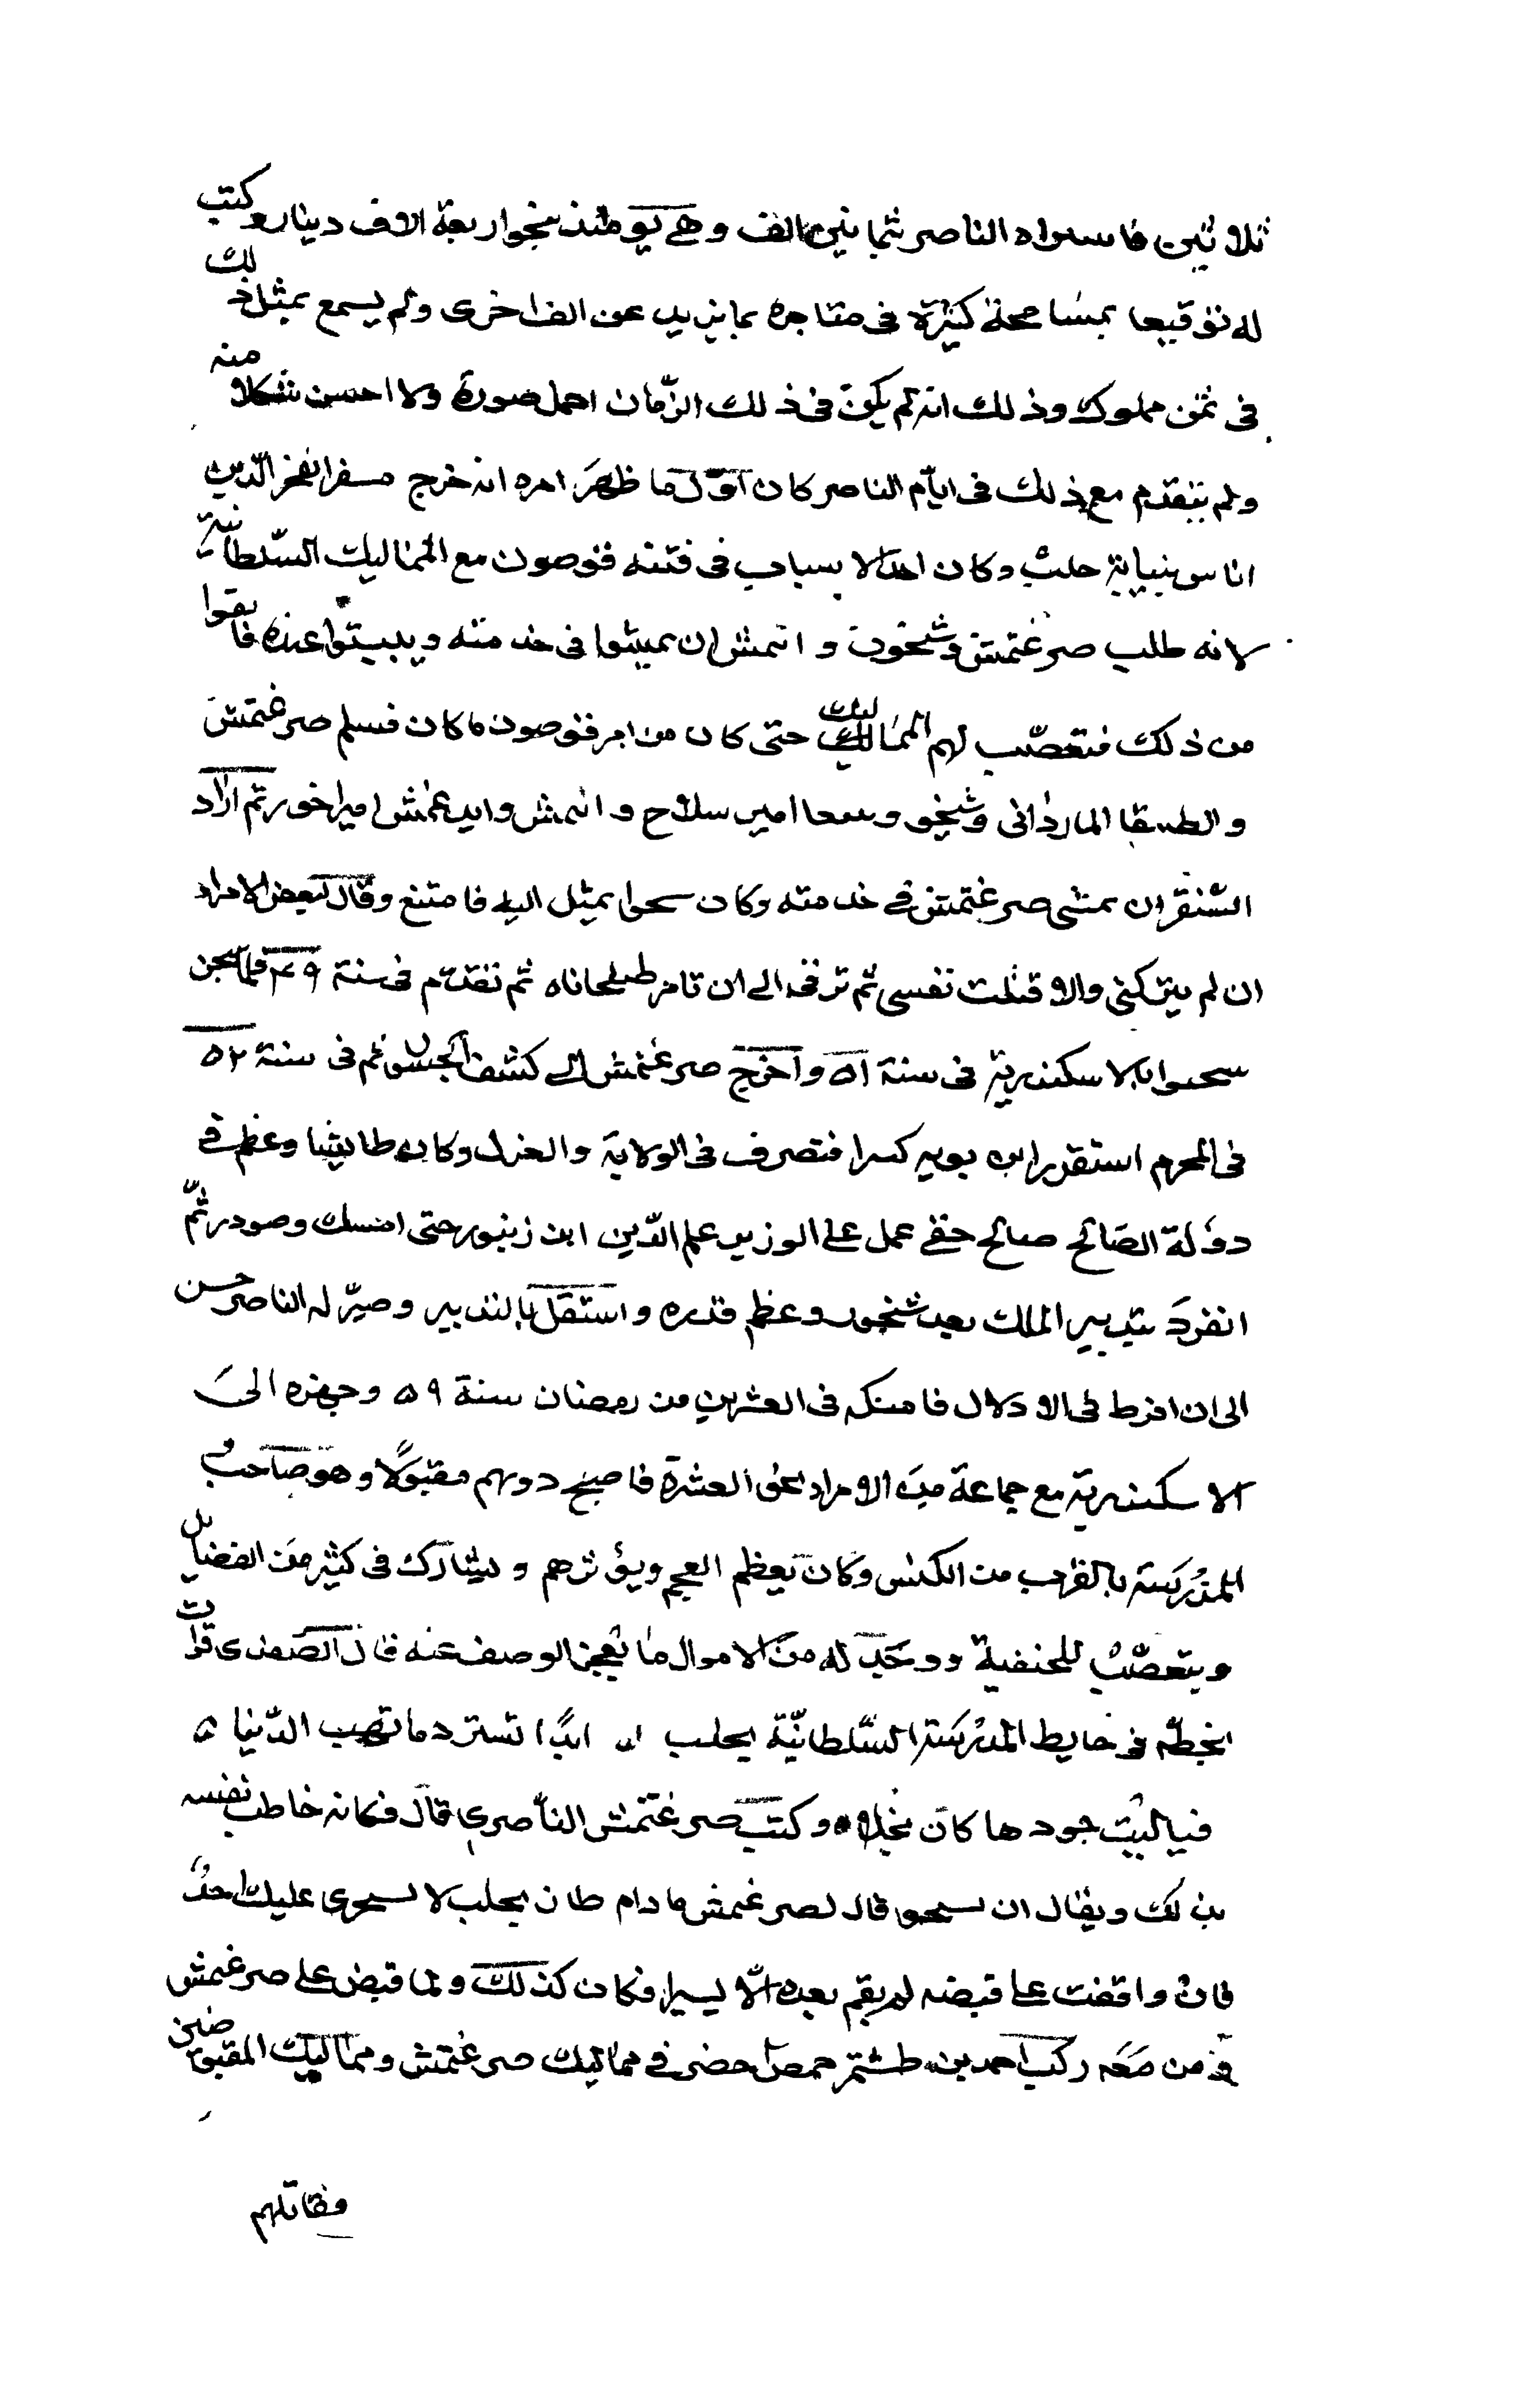 ثلاثين فاسراه الناصر بثمانين الف وهي يومئذ بنحو اربعة الاف دينار وكتب
له توقيعا بمسامحة كثيرة في متاجره بما يزيد عن الف اخرى ولم يسمع بمثل ذلك
في ثمن مملوك وذلك انه لم يكن في ذلك الزمان اجمل صورة ولا احسن شكلا منه
ولم يتقدم مع ذلك في ايام الناصر كان اول ما ظهر امره انه خرج مسفرا لفخر الدين
اناس بنيابة حلب وكان احد الاسباب في فتنه قوصون مع المماليك السلطانية
لانه طلب صرغتمش وشيخون و اتمش ان يمشوا في خدمته ويبيتوا عنده فابقوا
من ذلك فتعصب لهم المماليك حتى كان من امر قوصون ما كان فسلم صرغتمش
والطنبغا المارداني وشيخو و امير سلاح و اتمش وايدغمش اميراخور ثم اراد
السنقر ان يمشي صرغتمش في خدمته وكان يميل اليه فامتنع وقال لبعض الامراء
ان لم يتركني والا قتلت نفسي ثم ترقى الى ان تامر طبلخاناه ثم تقدم في سنة ٤٩ فلما سجن
بالاسكندرية في سنة ٥١ واخرج صرغتمش الى كشف الجسور ثم في سنة ٥٢
في المحرم استقر راس نوبه كبيرا فتصرف في الولاية والعزل وكان طايشا وعظم في
دولة الصالح صالح حتى عمل على الوزير علم الدين ابن زنبور حتى امسك وصودر ثم
انفرد بتدبير الملك بعد شيخون وعظم قدره واستقل بالتدبير وصير له الناصر حسن
الى ان افرط في الادلال فامسكه في العشرين من رمضان سنة ٥٩ وجهزه الى
الاسكندرية مع جماعة من الامراء نحو العشرة فاصبح دونهم مقبولا وهو صاحب
المدرسة بالقرب من الكبش وكان يعظم العجم ويؤثرهم ويشارك في كثير من الفضايل
ويتعصب للحنفية ووجد له من الاموال ما يعجز الوصف عنه قال الصفدي قرات
بخطه في حايط المدرسة السلطانية بحلب ابدا تسترد ما تهب الدنيا ٥
فياليت جودها كان بخلا وكتب صرغتمش الناصري قال فكانه خاطب نفسه
بذلك ويقال ان شيخو قال لصرغتمش ما دام طاز بحلب لا يجرى عليك احد
فان وافقت على قبضه لم يقم بعده الا يسيرا فكان كذلك ولما قبض على صرغتمش
و من معه ركب احمد بن طشتمر حمص اخضر في مماليك صرغتمش ومماليك المقبوضين
فقاتلهم